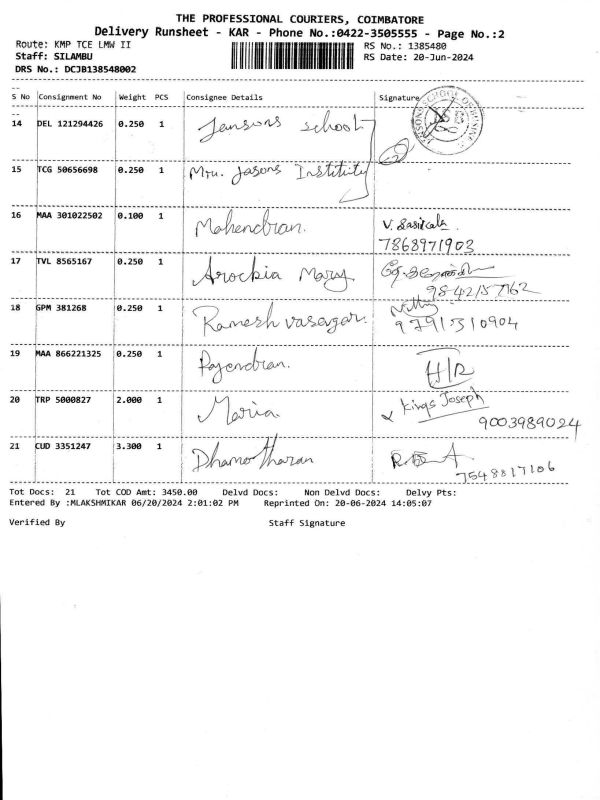 THE PROFESSIONAL COURIERS, COIMBATORE
Delivery Runsheet - KAR - Phone No.:0422-3505555 - Page No.:2
Route: KMP TCE LMW II RS No.: 1385480
Staff: SILAMBU RS Date: 20-Jun-2024
DRS No.: DCJB138548002
S No Consignment No Weight PCS Consignee Details Signature
14 DEL 121294426 0.250 1 Jansons school
15 TCG 50656698 0.250 1 Jasons Institute
16 MAA 301022502 0.100 1 Mahendran. V. Sasikala.
7868971903
17 TVL 8565167 0.250 1 Arockia Mary
9842157162
18 GPM 381268 0.250 1 Ramesh vasagar.
9791310904
19 MAA 866221325 0.250 1 Rajendran. H/R
20 TRP 5000827 2.000 1 Maria Kings Joseph
9003989024
21 CUD 3351247 3.300 1 Dhamotharan
7548817106
Tot Docs: 21 Tot COD Amt: 3450.00 Delvd Docs: Non Delvd Docs: Delvy Pts:
Entered By :MLAKSHMIKAR 06/20/2024 2:01:02 PM Reprinted On: 20-06-2024 14:05:07
Verified By Staff Signature